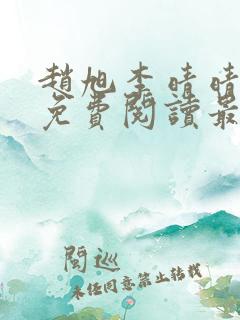 趙旭李晴晴
免費閱讀最
閱巡
未經同意禁止轉載